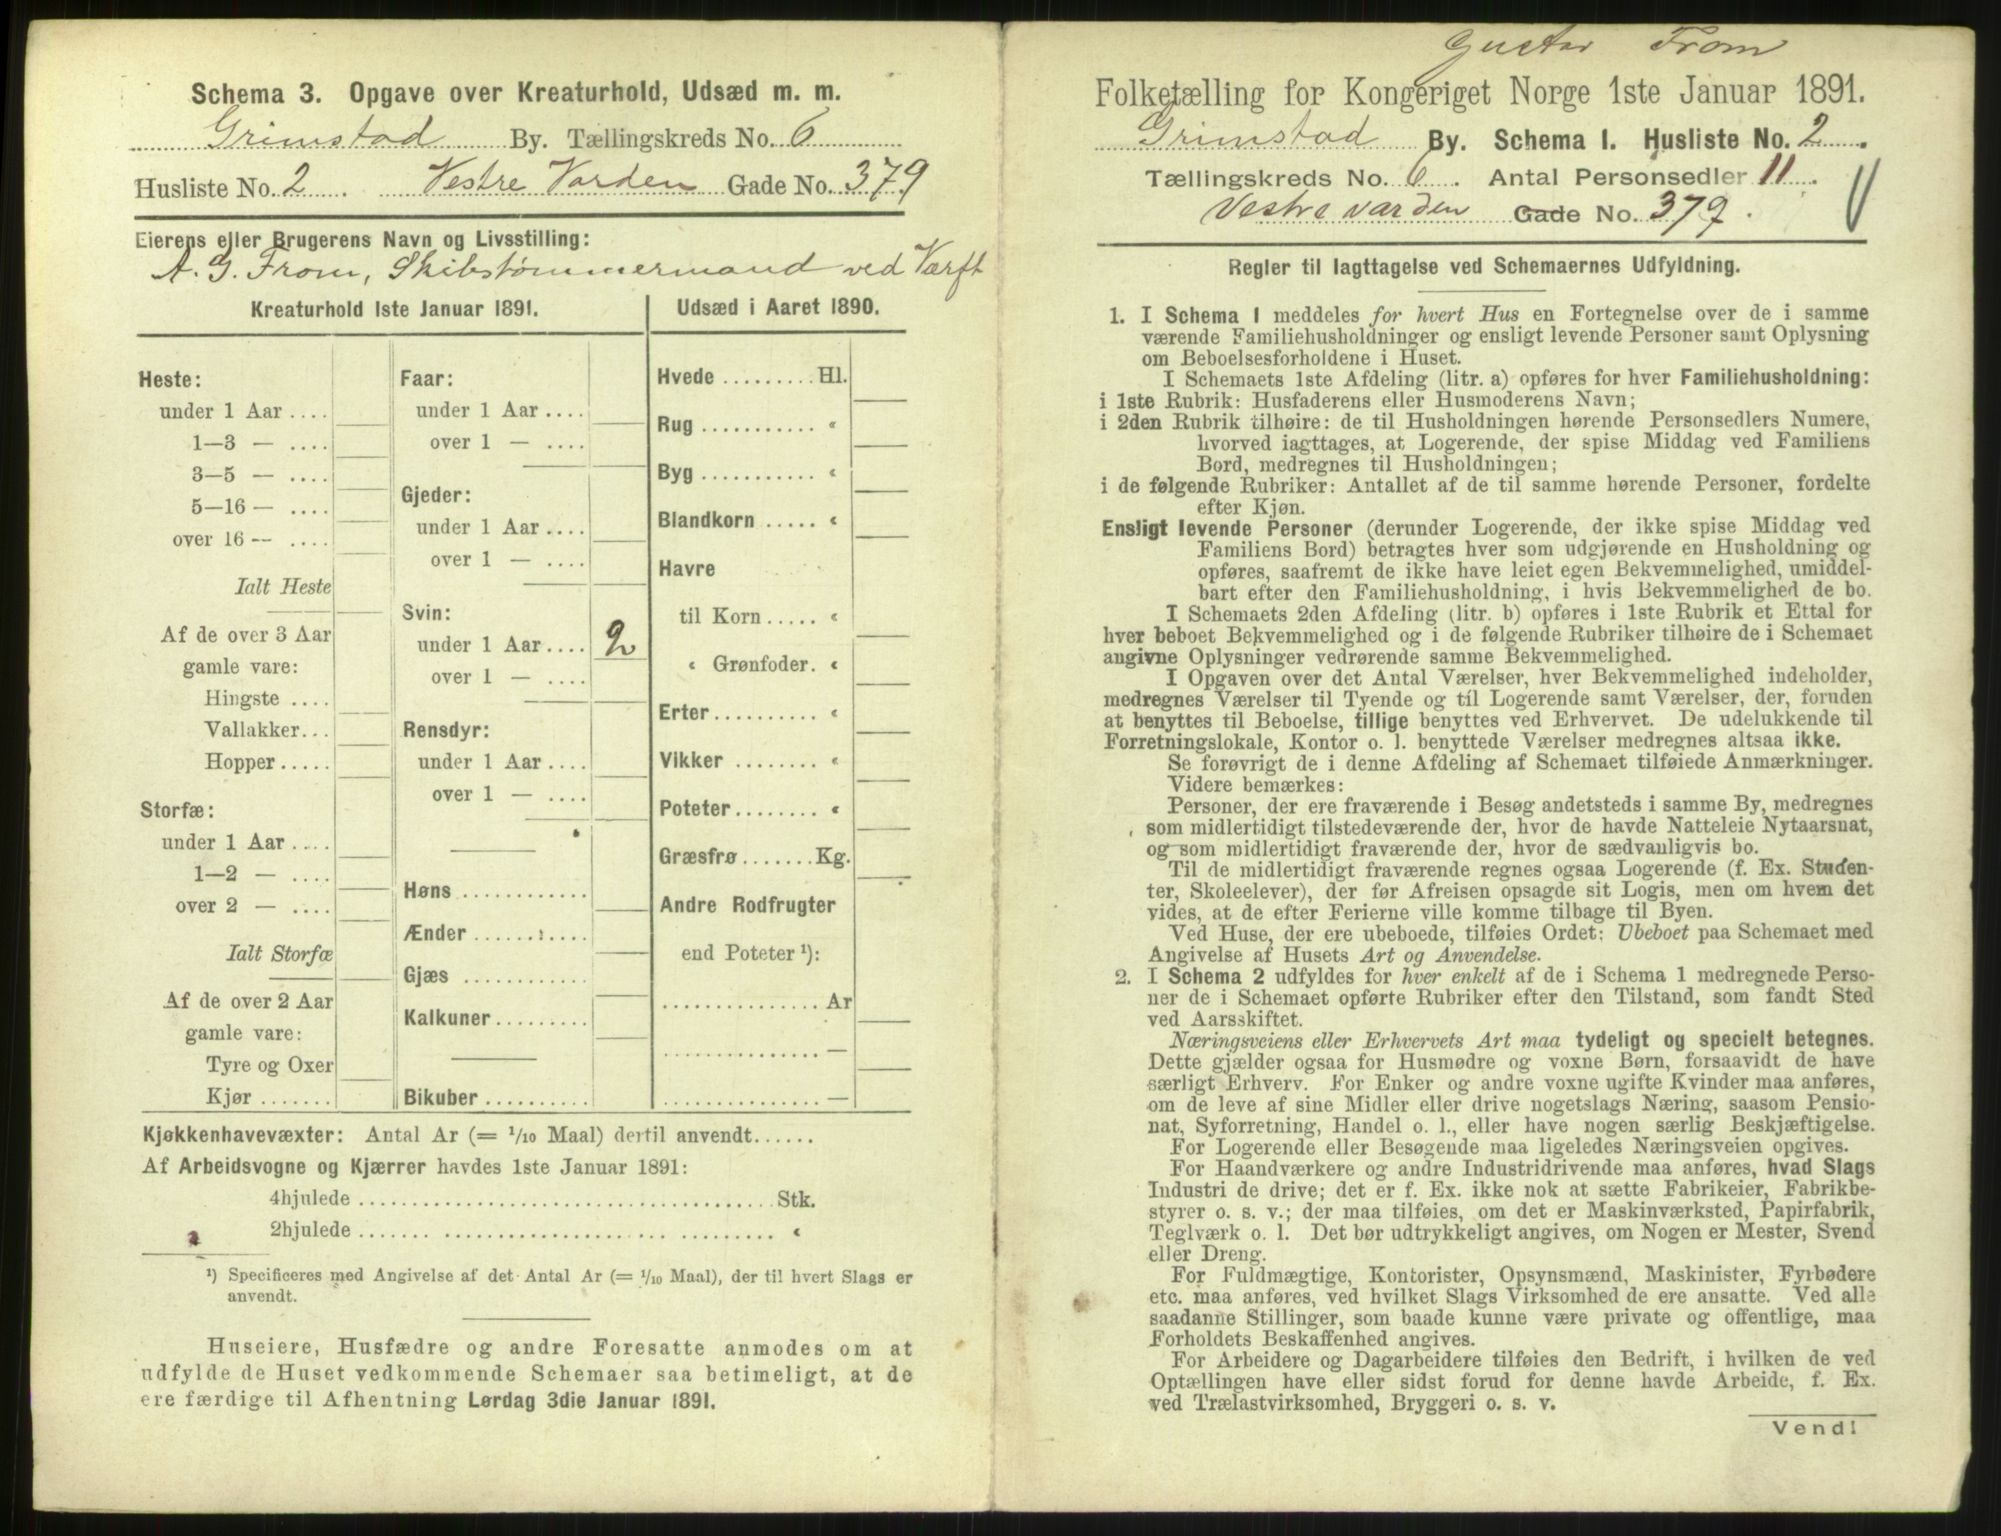 Schema 3. Opgave over Kreaturhold, Udsæd m. m.
Grimstad By. Tællingskreds No. 6
Husliste No. 2 . Vestre Varden Gade No. 379
Eierens eller Brugerens Navn og Livsstilling:
A. G. From, Skibstømmermand ved Værft
Kreaturhold 1ste Januar 1891.
Heste:
under 1 Aar ....
1—3 — ....
3—5 — ....
5—16 — ....
over 16 — ....
Ialt Heste
Af de over 3 Aar
gamle vare:
Hingste ....
Vallakker...
Hopper.....
Storfæ:
under 1 Aar ....
1—2 — ....
over 2 — ....
Ialt Storfæ
Af de over 2 Aar
gamle vare:
Tyre og Oxer
Kjør .......
Faar:
under 1 Aar ....
over 1 — ....
Gjeder:
under 1 Aar ....
over 1 — ....
Svin:
under 1 Aar .... 2
over 1 — ....
Rensdyr:
under 1 Aar ....
over 1 — ....
Høns ............
Ænder ...........
Gjæs ............
Kalkuner.........
Bikuber ..........
Udsæd i Aaret 1890.
Hvede ......... Hl.
Rug ........... «
Byg ........... «
Blandkorn ..... «
Havre
til Korn ..... «
« Grønfoder. «
Erter.......... «
Vikker ........ «
Poteter........ «
Græsfrø....... Kg.
Andre Rodfrugter
end Poteter ¹):
............... Ar
............... —
............... —
Kjøkkenhavevæxter: Antal Ar (= 1/10 Maal) dertil anvendt......
Af Arbeidsvogne og Kjærrer havdes 1ste Januar 1891:
4hjulede ...................................... Stk.
2hjulede ...................................... «
¹) Specificeres med Angivelse af det Antal Ar (= 1/10 Maal), der til hvert Slags er
anvendt.
Huseiere, Husfædre og andre Foresatte anmodes om at
udfylde de Huset vedkommende Schemaer saa betimeligt, at de
ere færdige til Afhentning Lørdag 3die Januar 1891.
Gustav From
Folketælling for Kongeriget Norge 1ste Januar 1891.
Grimstad By. Schema I. Husliste No. 2 .
Tællingskreds No. 6 . Antal Personsedler 11 .
Vestre varden Gade No. 379 .
Regler til Iagttagelse ved Schemaernes Udfyldning.
1. I Schema I meddeles for hvert Hus en Fortegnelse over de i samme
værende Familiehusholdninger og ensligt levende Personer samt Oplysning
om Beboelsesforholdene i Huset.
I Schemaets 1ste Afdeling (litr. a) opføres for hver Familiehusholdning:
i 1ste Rubrik: Husfaderens eller Husmoderens Navn;
i 2den Rubrik tilhøire: de til Husholdningen hørende Personsedlers Numere,
hvorved iagttages, at Logerende, der spise Middag ved Familiens
Bord, medregnes til Husholdningen;
i de følgende Rubriker: Antallet af de til samme hørende Personer, fordelte
efter Kjøn.
Ensligt levende Personer (derunder Logerende, der ikke spise Middag ved
Familiens Bord) betragtes hver som udgjørende en Husholdning og
opføres, saafremt de ikke have leiet egen Bekvemmelighed, umiddel-
bart efter den Familiehusholdning, i hvis Bekvemmelighed de bo.
I Schemaets 2den Afdeling (litr. b) opføres i 1ste Rubrik et Ettal for
hver beboet Bekvemmelighed og i de følgende Rubriker tilhøire de i Schemaet
angivne Oplysninger vedrørende samme Bekvemmelighed.
I Opgaven over det Antal Værelser, hver Bekvemmelighed indeholder,
medregnes Værelser til Tyende og til Logerende samt Værelser, der, foruden
at benyttes til Beboelse, tillige benyttes ved Erhvervet. De udelukkende til
Forretningslokale, Kontor o. l. benyttede Værelser medregnes altsaa ikke.
Se forøvrigt de i denne Afdeling af Schemaet tilføiede Anmærkninger.
Videre bemærkes:
Personer, der ere fraværende i Besøg andetsteds i samme By, medregnes
som midlertidigt tilstedeværende der, hvor de havde Natteleie Nytaarsnat,
og som midlertidigt fraværende der, hvor de sædvanligvis bo.
Til de midlertidigt fraværende regnes ogsaa Logerende (f. Ex. Studen-
ter, Skoleelever), der før Afreisen opsagde sit Logis, men om hvem det
vides, at de efter Ferierne ville komme tilbage til Byen.
Ved Huse, der ere ubeboede, tilføies Ordet: Ubeboet paa Schemaet med
Angivelse af Husets Art og Anvendelse.
2. I Schema 2 udfyldes for hver enkelt af de i Schema 1 medregnede Perso-
ner de i Schemaet opførte Rubriker efter den Tilstand, som fandt Sted
ved Aarsskiftet.
Næringsveiens eller Erhvervets Art maa tydeligt og specielt betegnes.
Dette gjælder ogsaa for Husmødre og voxne Børn, forsaavidt de have
særligt Erhverv. For Enker og andre voxne ugifte Kvinder maa anføres,
om de leve af sine Midler eller drive nogetslags Næring, saasom Pensio-
nat, Syforretning, Handel o. l., eller have nogen særlig Beskjæftigelse.
For Logerende eller Besøgende maa ligeledes Næringsveien opgives.
For Haandværkere og andre Industridrivende maa anføres, hvad Slags
Industri de drive; det er f. Ex. ikke nok at sætte Fabrikeier, Fabrikbe-
styrer o. s. v.; der maa tilføies, om det er Maskinværksted, Papirfabrik,
Teglværk o. l. Det bør udtrykkeligt angives, om Nogen er Mester, Svend
eller Dreng.
For Fuldmægtige, Kontorister, Opsynsmænd, Maskinister, Fyrbødere
etc. maa anføres, ved hvilket Slags Virksomhed de ere ansatte. Ved alle
saadanne Stillinger, som baade kunne være private og offentlige, maa
Forholdets Beskaffenhed angives.
For Arbeidere og Dagarbeidere tilføies den Bedrift, i hvilken de ved
Optællingen have eller sidst forud for denne havde Arbeide, f. Ex.
ved Trælastvirksomhed, Bryggeri o. s. v.
Vend!